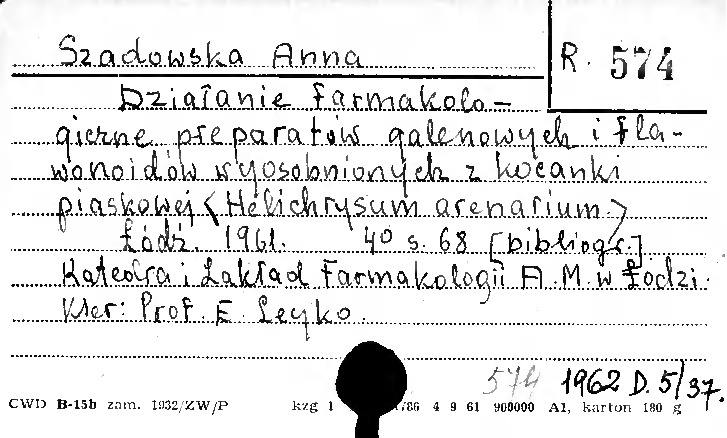 Szadowska Anna
R. 574
Działanie farmakolo-
giczne preparatów galenowych i fla-
wonoidów wyosobnionych z kocanki
piaskowej (Helichrysum arenarium)
Łódź. 1961. 4° s. 68 [bibliogr.]
Katedra i Zakład Farmakologii A.M. w Łodzi.
Kier: Prof. E. Leyko.
574 1962 D. 5/37.
CWD B-15b zam. 1932/ZW/P kzg 1 /86 4 9 61 900000 A1, karton 180 g